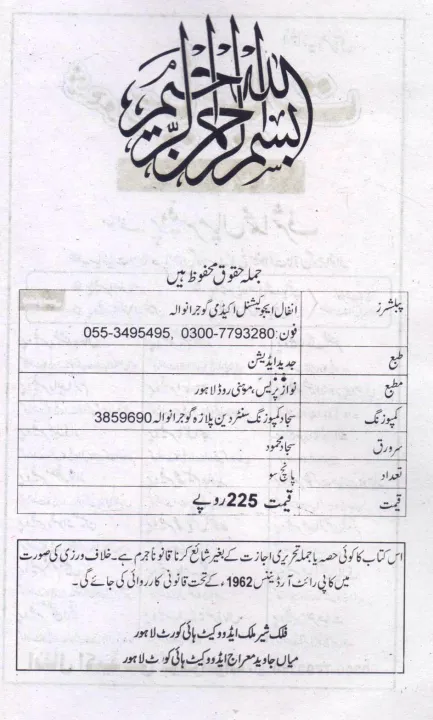 بسم الله الرحمن الرحيم
جملہ حقوق محفوظ ہیں
پبلشرز انفال ایجوکیشنل اکیڈمی گوجرانوالہ
فون: 0300-7793280, 055-3495495
طبع جدید ایڈیشن
مطبع نواز پریس، موہنی روڈ لاہور
کمپوزنگ سجاد کمپوزنگ سنٹر دین پلازہ گوجرانوالہ 3859690
سرورق سجاد محمود
تعداد پانچ سو
قیمت قیمت 225 روپے
اس کتاب کا کوئی حصہ یا جملہ تحریری اجازت کے بغیر شائع کرنا قانوناً جرم ہے۔ خلاف ورزی کی صورت
میں کاپی رائٹ آرڈیننس 1962ء کے تحت قانونی کارروائی کی جائے گی۔
فلک شیر ملک ایڈووکیٹ ہائی کورٹ لاہور
میاں جاوید معراج ایڈووکیٹ ہائی کورٹ لاہور